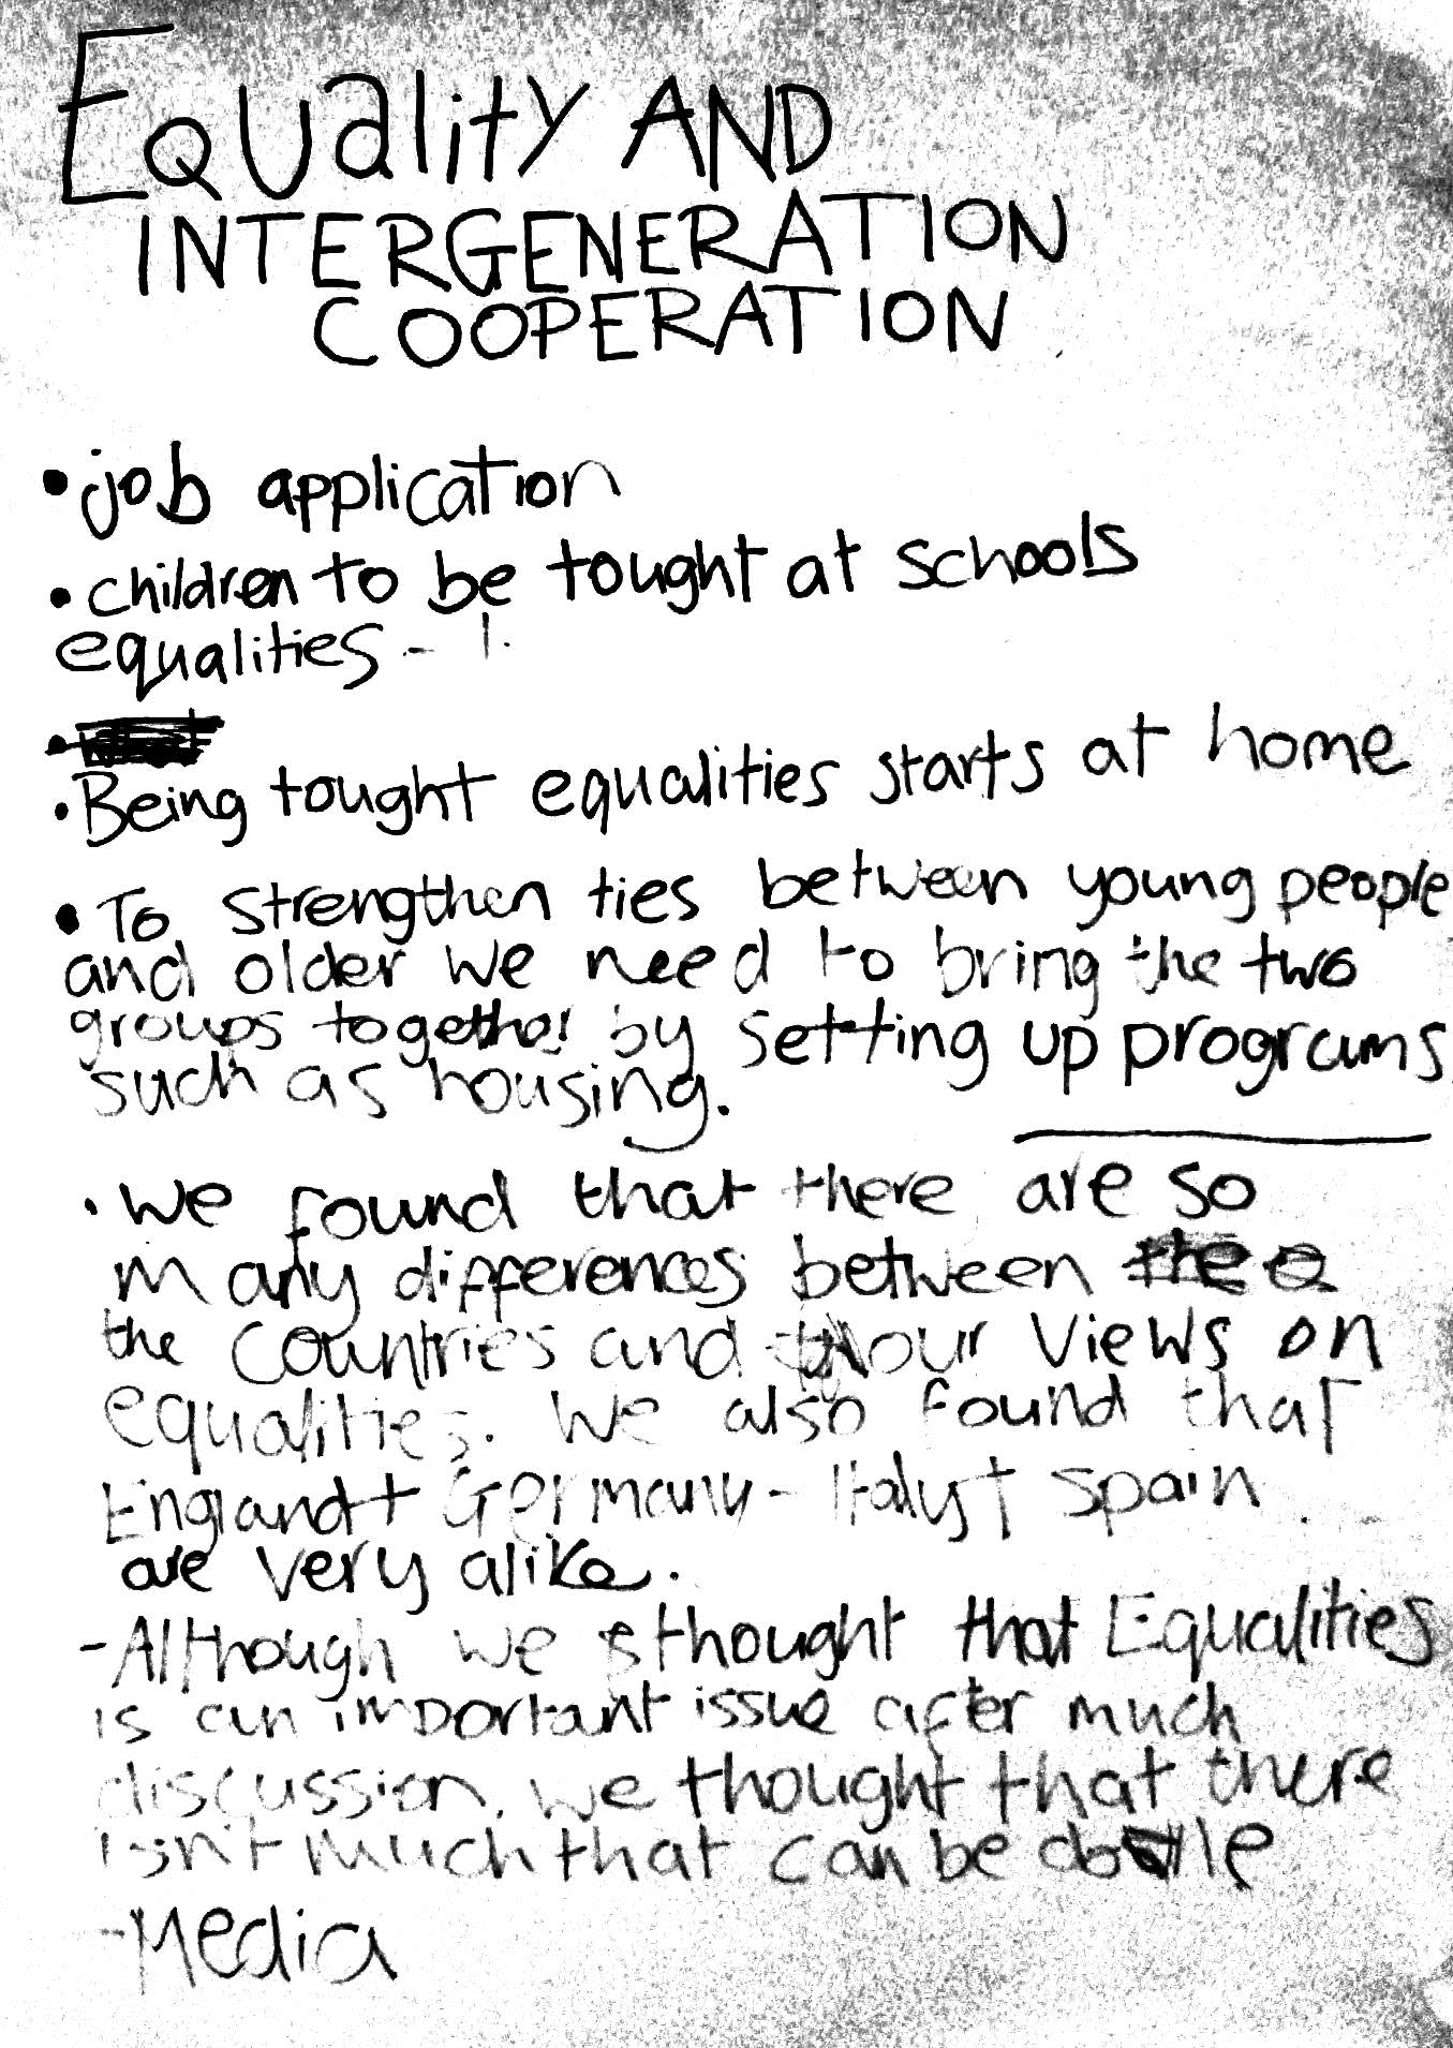 EQUality AND
INTERGENERATION
COOPERATION
• job application
• children to be tought at schools
equalities -
• Being tought equalities starts at home
• To strengthen ties between young people
and older we need to bring the two
groups together by setting up programs
such as housing.
• We found that there are so
many differences between
the countries and our views on
equalities. We also found that
England + Germany - Italy + Spain
are very alike.
- Although we thought that Equalities
is an important issue after much
discussion, we thought that there
isn't much that can be done
- Media